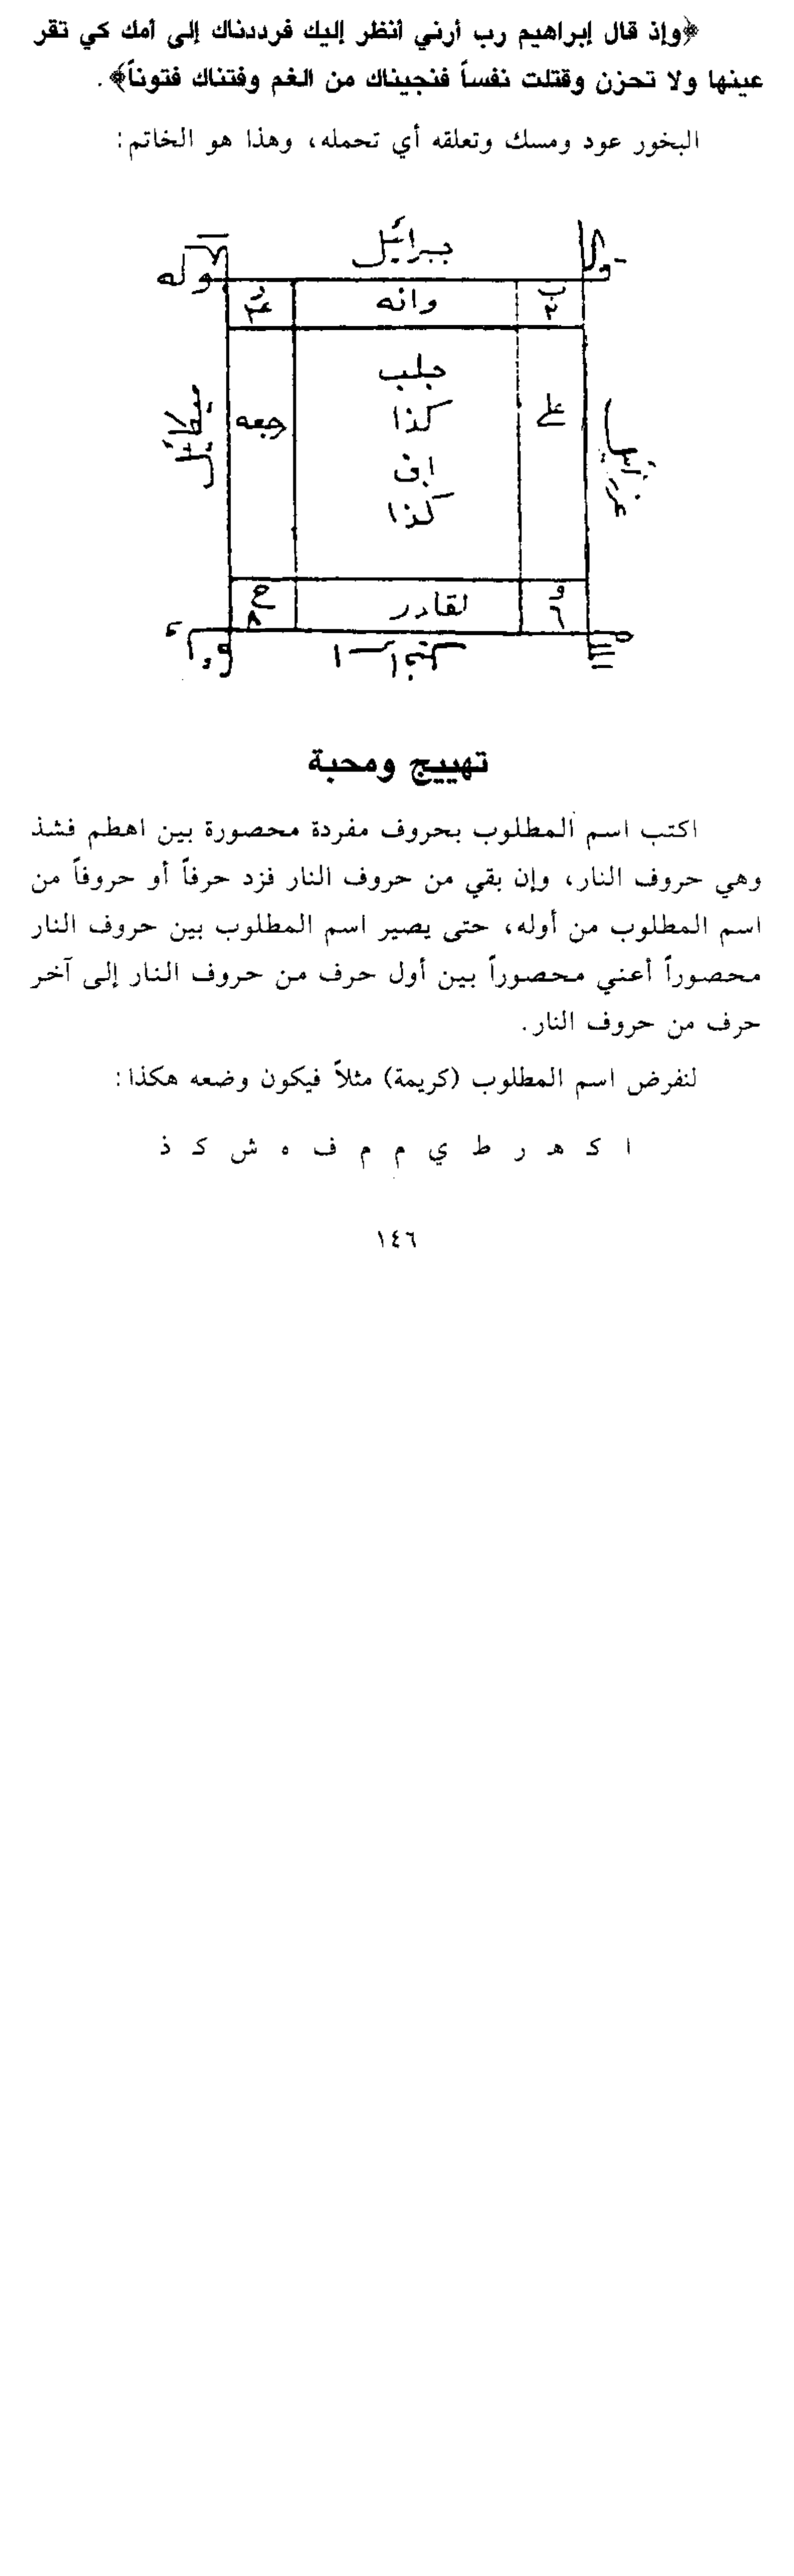 ﴿وإذ قال إبراهيم رب أرني أنظر إليك فرددناك إلى أمك كي تقر
عينها ولا تحزن وقتلت نفساً فنجيناك من الغم وفتناك فتوناً﴾.
البخور عود ومسك وتعلقه أي تحمله، وهذا هو الخاتم:
جبرائيل
وله
ب ٢
وانه
د ٤
عزرائيل
على
جلب
كذا
ابن
كذا
رجعه
ميكائيل
و ٦
لقادر
ح ٨
تهييج ومحبة
اكتب اسم المطلوب بحروف مفردة محصورة بين اهطم فشذ
وهي حروف النار، وإن بقي من حروف النار فزد حرفاً أو حروفاً من
اسم المطلوب من أوله، حتى يصير اسم المطلوب بين حروف النار
محصوراً أعني محصوراً بين أول حرف من حروف النار إلى آخر
حرف من حروف النار.
لنفرض اسم المطلوب (كريمة) مثلاً فيكون وضعه هكذا:
ا كـ هـ ر ط ي م م ف ه ش كـ ذ
١٤٦